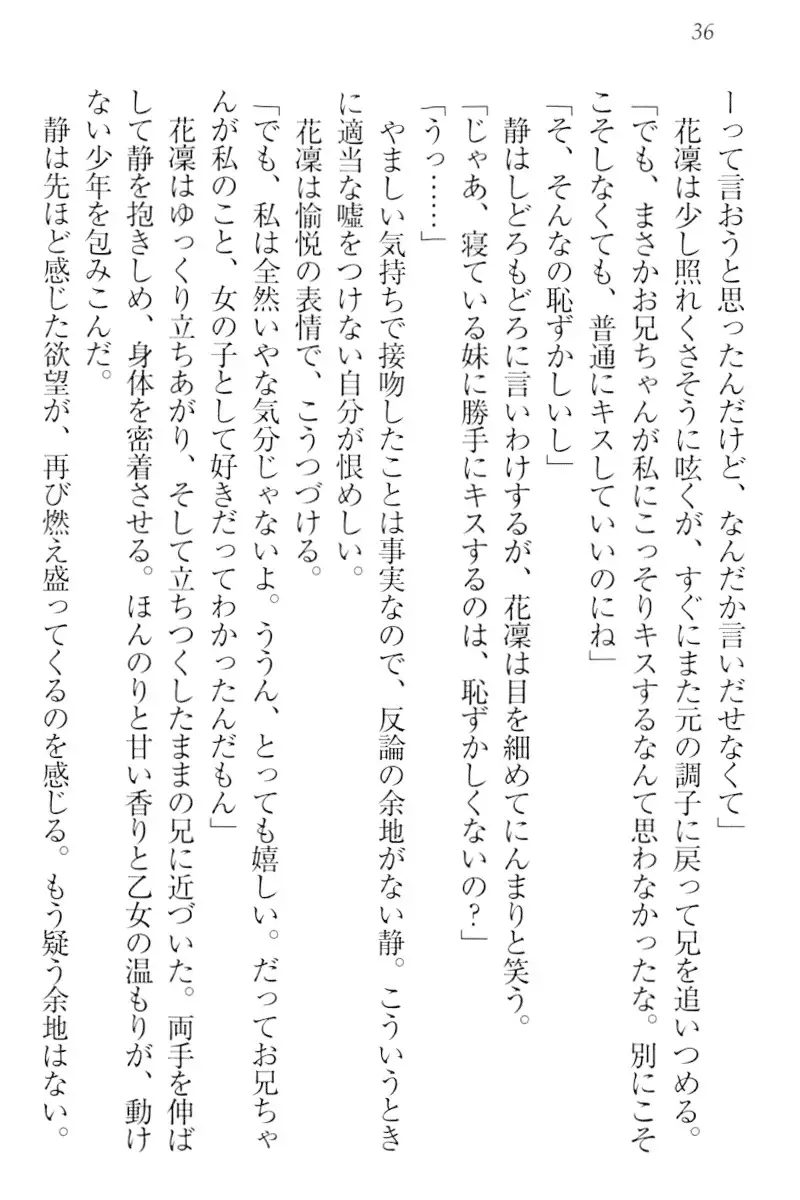 36
ーって言おうと思ったんだけど、なんだか言いだせなくて」
花凛は少し照れくさそうに呟くが、すぐにまた元の調子に戻って兄を追いつめる。
「でも、まさかお兄ちゃんが私にこっそりキスするなんて思わなかったな。別にこそ
こそしなくても、普通にキスしていいのにね」
「そ、そんなの恥ずかしいし」
静はしどろもどろに言いわけするが、花凛は目を細めてにんまりと笑う。
「じゃあ、寝ている妹に勝手にキスするのは、恥ずかしくないの？」
「うっ……」
やましい気持ちで接吻したことは事実なので、反論の余地がない静。こういうとき
に適当な嘘をつけない自分が恨めしい。
花凛は愉悦の表情で、こうつづける。
「でも、私は全然いやな気分じゃないよ。ううん、とっても嬉しい。だってお兄ちゃ
んが私のこと、女の子として好きだってわかったんだもん」
花凛はゆっくり立ちあがり、そして立ちつくしたままの兄に近づいた。両手を伸ば
して静を抱きしめ、身体を密着させる。ほんのりと甘い香りと乙女の温もりが、動け
ない少年を包みこんだ。
静は先ほど感じた欲望が、再び燃え盛ってくるのを感じる。もう疑う余地はない。